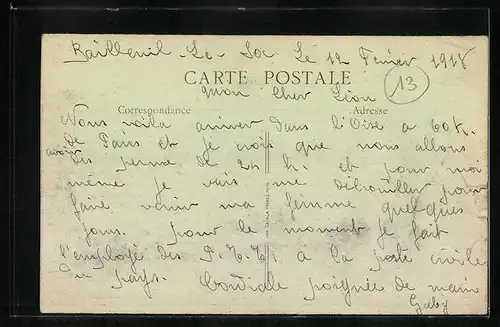 Bailleul-Le-Soc Le 12 Fevier 1918
CARTE POSTALE
13
Mon Cher Léon
Correspondance
Adresse
Nous voila arriver dans l'Oise a 60 K.
de Paris et je crois que nous allons
avoir des perme de 24 h. et pour moi
même je vais me débrouiller pour
faire venir ma femme quelques
jours. pour le moment je fait
l'employé des P.T.T. a la poste civile
du pays. Cordiale poignée de main
Gaby